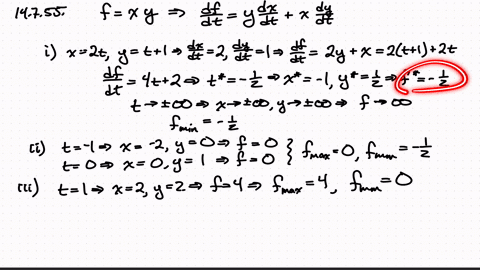 14.7.55. f = xy ⇒ df/dt = y dx/dt + x dy/dt
i) x = 2t, y = t+1 ⇒ dx/dt = 2, dy/dt = 1 ⇒ df/dt = 2y + x = 2(t+1) + 2t
df/dt = 4t + 2 ⇒ t* = -1/2 ⇒ x* = -1, y* = 1/2 ⇒ f* = -1/2
t → ±∞ ⇒ x → ±∞, y → ±∞ ⇒ f → ∞
f_min = -1/2
ii) t = -1 ⇒ x = -2, y = 0 ⇒ f = 0 } f_max = 0, f_min = -1/2
t = 0 ⇒ x = 0, y = 1 ⇒ f = 0
iii) t = 1 ⇒ x = 2, y = 2 ⇒ f = 4 ⇒ f_max = 4, f_min = 0